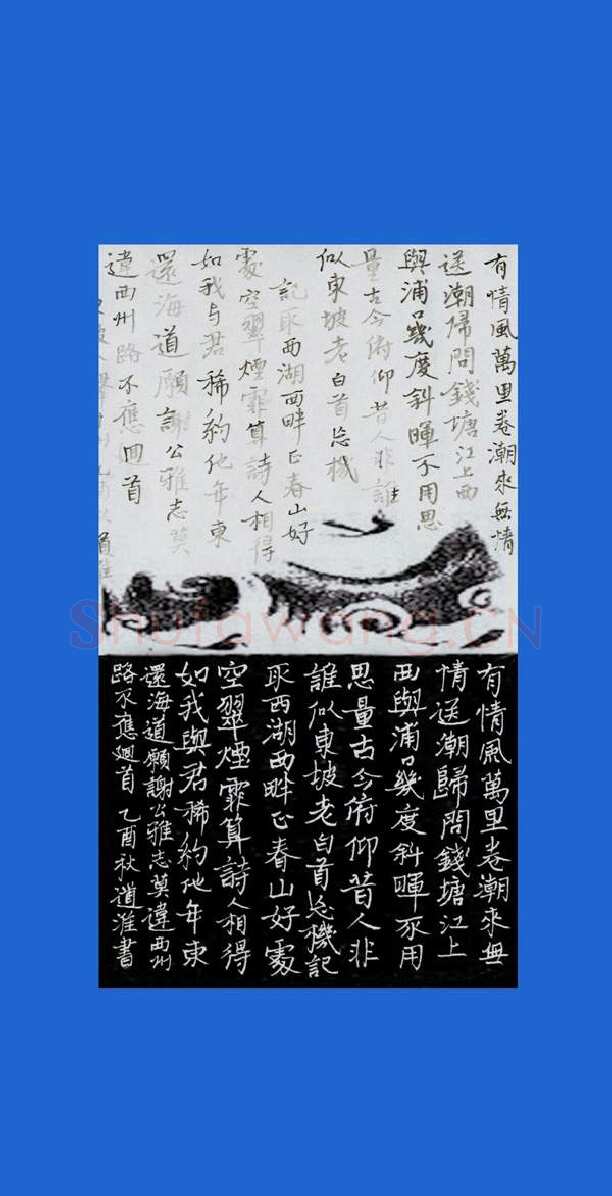 有情風萬里卷潮來無情
送潮帰問錢塘江上西
與浦口幾度斜暉不用思
量古今俯仰昔人非誰
似東坡老白首忘機
記取西湖西畔正春山好
處空翠煙霏算詩人相得
如我与君稀約他年東
還海道願謝公雅志莫
違西州路不應回首
有情風萬里卷潮來無
情送潮歸問錢塘江上
西與浦口幾度斜暉不用
思量古今俯仰昔人非
誰似東坡老白首忘機記
取西湖西畔正春山好處
空翠煙霏算詩人相得
如我與君稀約他年東
還海道願謝公雅志莫違西州
路不應迴首 乙酉秋道淮書
Shufawang.CN